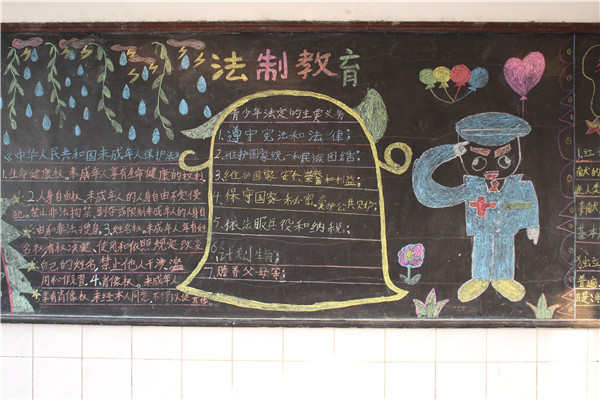 法制教育
《中华人民共和国未成年人保护法》
1.生命健康权,未成年人享有生命健康的权利
2.人身自由权,未成年人的人身自由不受侵
犯,禁止非法拘禁,剥夺或限制未成年人的人身自
由和非法搜身,3.姓名权,未成年人享有姓
名权有权决定,使用和依照规定改变
自己的姓名,禁止他人干涉,盗
用和假冒,4.肖像权,未成年人
享有肖像权,未经本人同意,不得以
青少年法定的主要义务
1.遵守宪法和法律;
2.维护国家统一和民族团结;
3.维护国家安全荣誉和利益;
4.保守国家秘密,爱护公共财物;
5.依法服兵役和纳税;
6.计划生育;
7.赡养父母等;